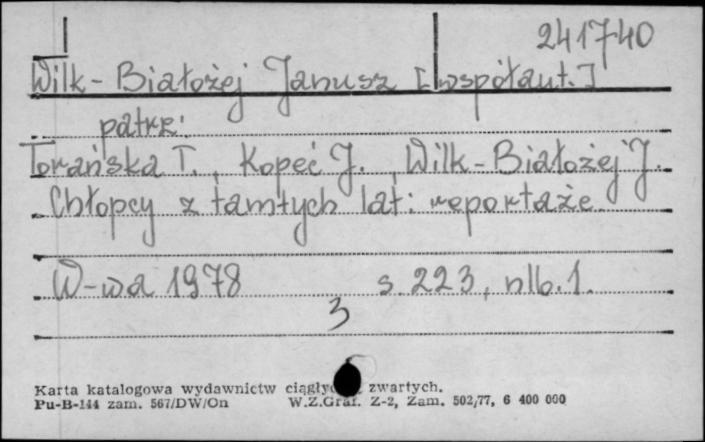 241740
Wilk-Białożej Janusz [współaut.]
patrz:
Torańska T., Kopeć J., Wilk-Białożej J.
Chłopcy z tamtych lat: reportaże.
W-wa 1978 s. 223, nlb. 1.
3
Karta katalogowa wydawnictw zwartych.
Pu-B-144 zam. 567/DW/On W.Z.Graf. Z-2, Zam. 502/77, 6 400 000